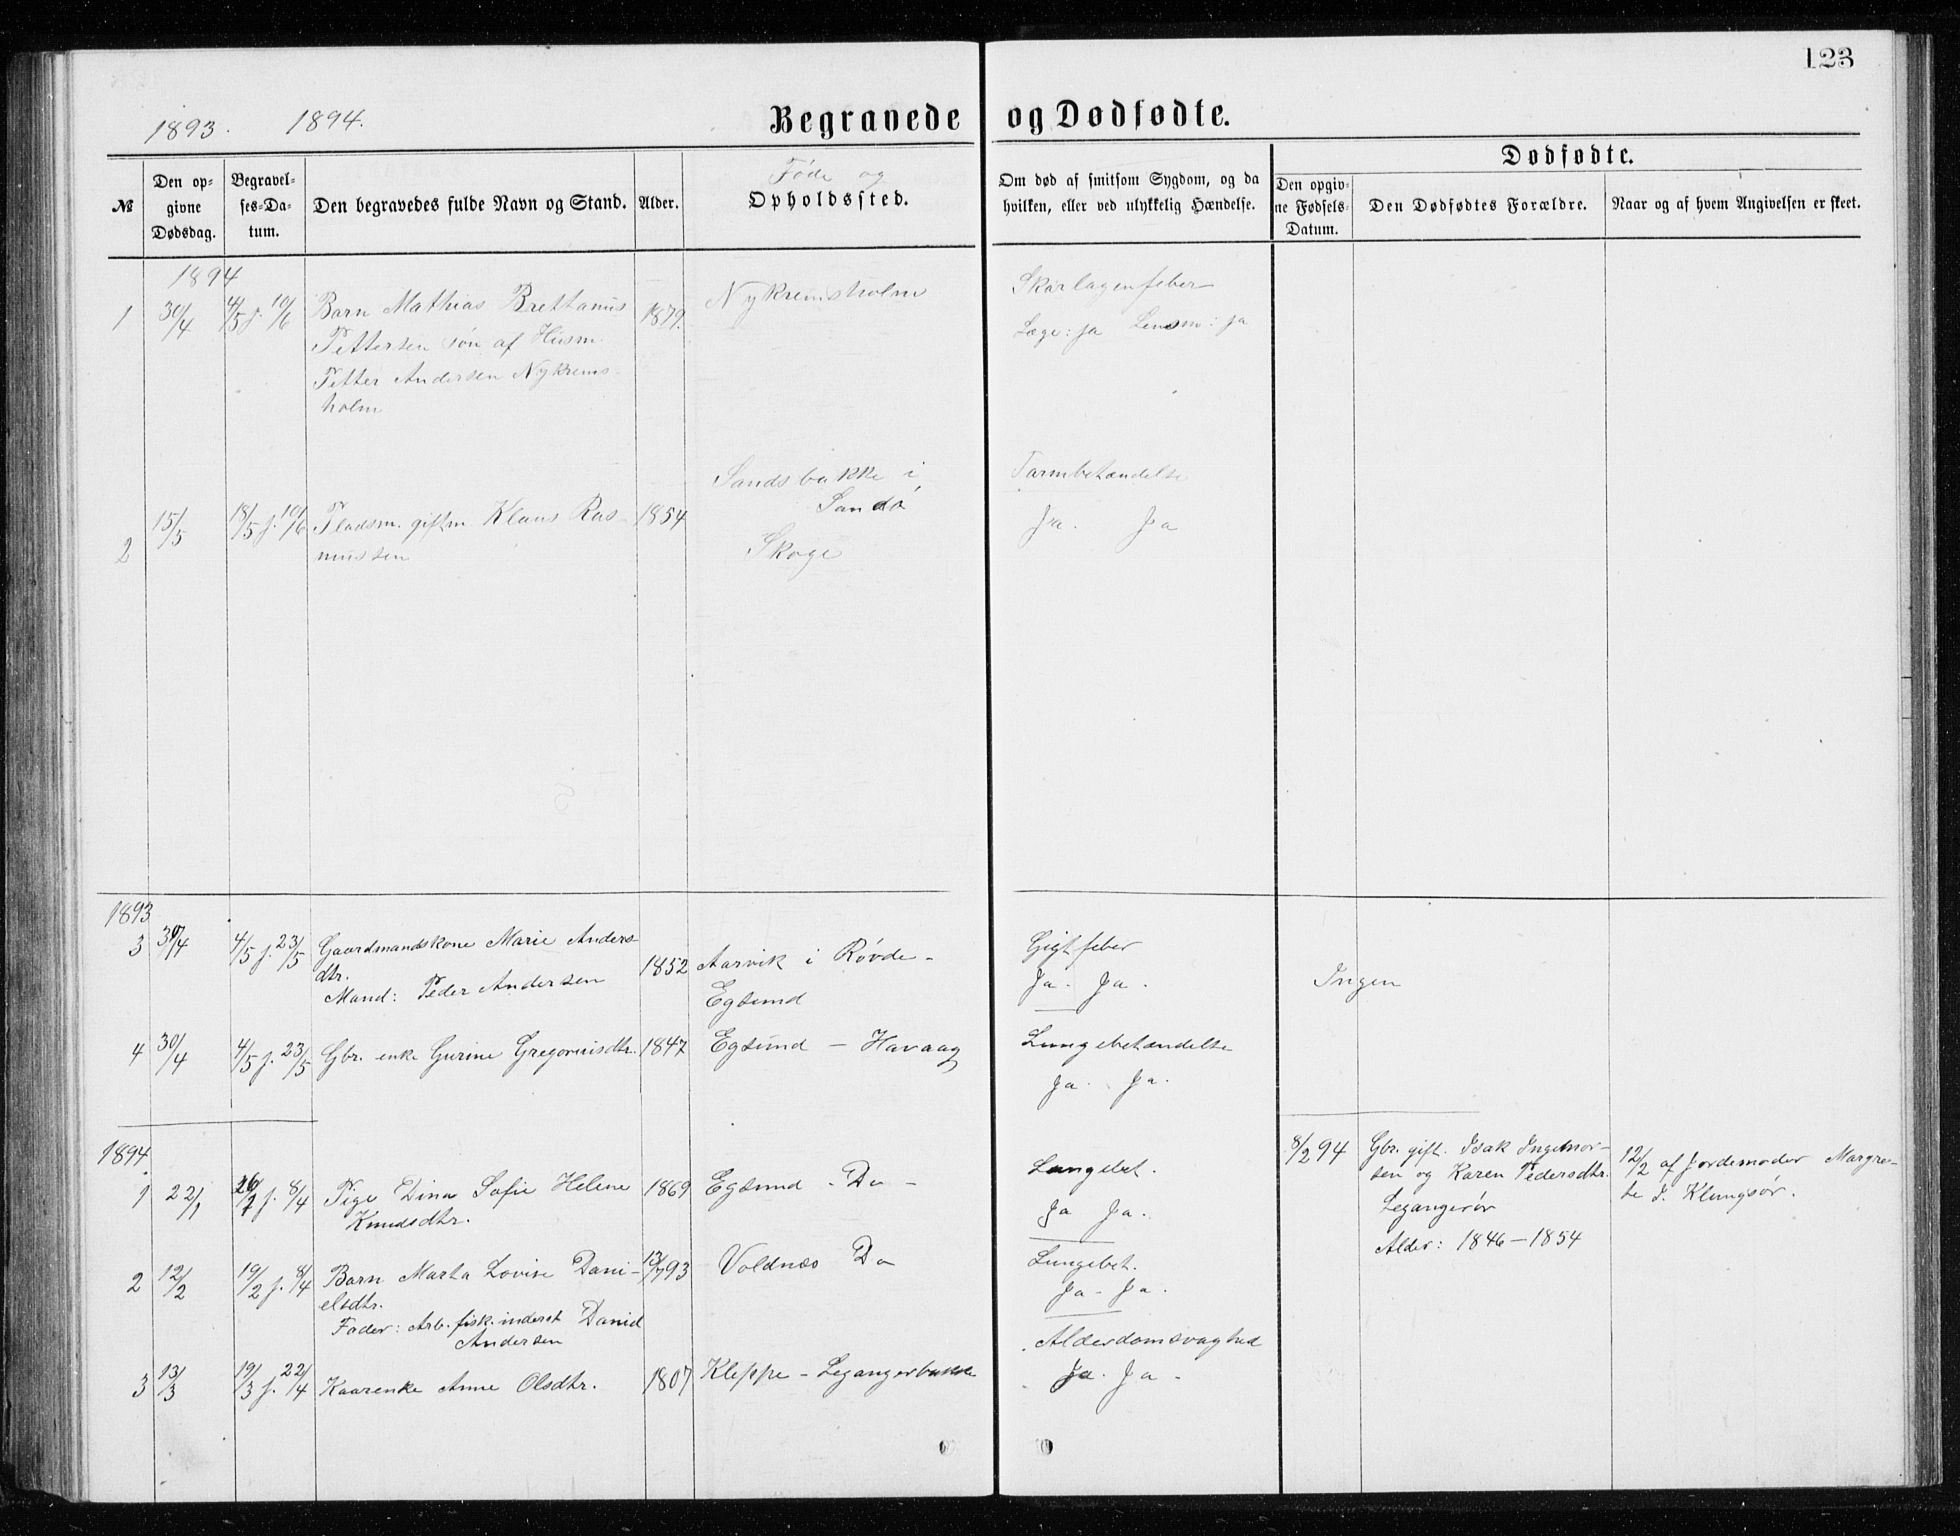 123
1893. 1894.
Begravede og Dødfødte.
№
Den opgivne Dødsdag.
Begravelses-Datum.
Den begravedes fulde Navn og Stand.
Alder.
Føde og
Opholdssted.
Om død af smitsom Sygdom, og da
hvilken, eller ved ulykkelig Hændelse.
Dødfødte.
Den opgivne Fødsels-Datum.
Den Dødfødtes Forældre.
Naar og af hvem Angivelsen er skeet.
1894
1 30/4 4/5 j. 10/6 Barn Mathias Brettanus 1879. Nykremsholm Skarlagenfeber
Pettersen søn af Husm. Læge: ja Lensm: ja
Petter Andersen Nykrems-
holm
Sandsbakke i Tarmbetændelse
2 15/5 18/5 j. 10/6 Pladsm. giftm Klaus Ras- 1854 Sandø ja. Ja
mussen Skoge
1893
3 30/4 4/5 j. 23/5 Gaardmandskone Marie Anders- 1852 Aarvik i Røvde - Gigtfeber
dtr.
Mand: Peder Andersen Egsund Ja. Ja. Ingen
4 30/4 4/5 j. 23/5 Gbr. enke Gurine Gregoriusdtr. 1847 Egsund - Havaag Lungebetændelse
Ja. Ja.
1894.
1 22/1 j. 8/4 Pige Dina Sofie Helene 1869 Egsund - Do - Lungebet.
Knudsdtr. Ja Ja.
8/2 94 Gbr. gift. Isak Ingebor- 12/2 af Jordemoder Margre-
sen og Karen Pedersdtr. te I. Klungsør.
Legangerør
Alder: 1846-1854
2 12/2 19/2 j. 8/4 Barn Marta Lovise Dani- 13/7 93 Voldnæs Do Lungebet.
elsdtr. Ja - Ja.
Fader: Arb. fisk. inderst Daniel
Andersen
3 13/3 19/3 j. 22/4 Kaarenke Anne Olsdtr. 1807 Kleppe - Legangerbakke Alderdomsvaghed
Ja. Ja -